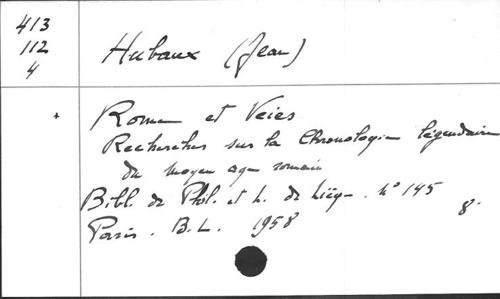 413
112
4
Hubaux (Jean)
* Rome et Veies
Recherches sur la Chronologie légendaire
du moyen age romain
Bibl. de Phil. et L. de Liège. N° 145
8°
Paris. B.L. 1958